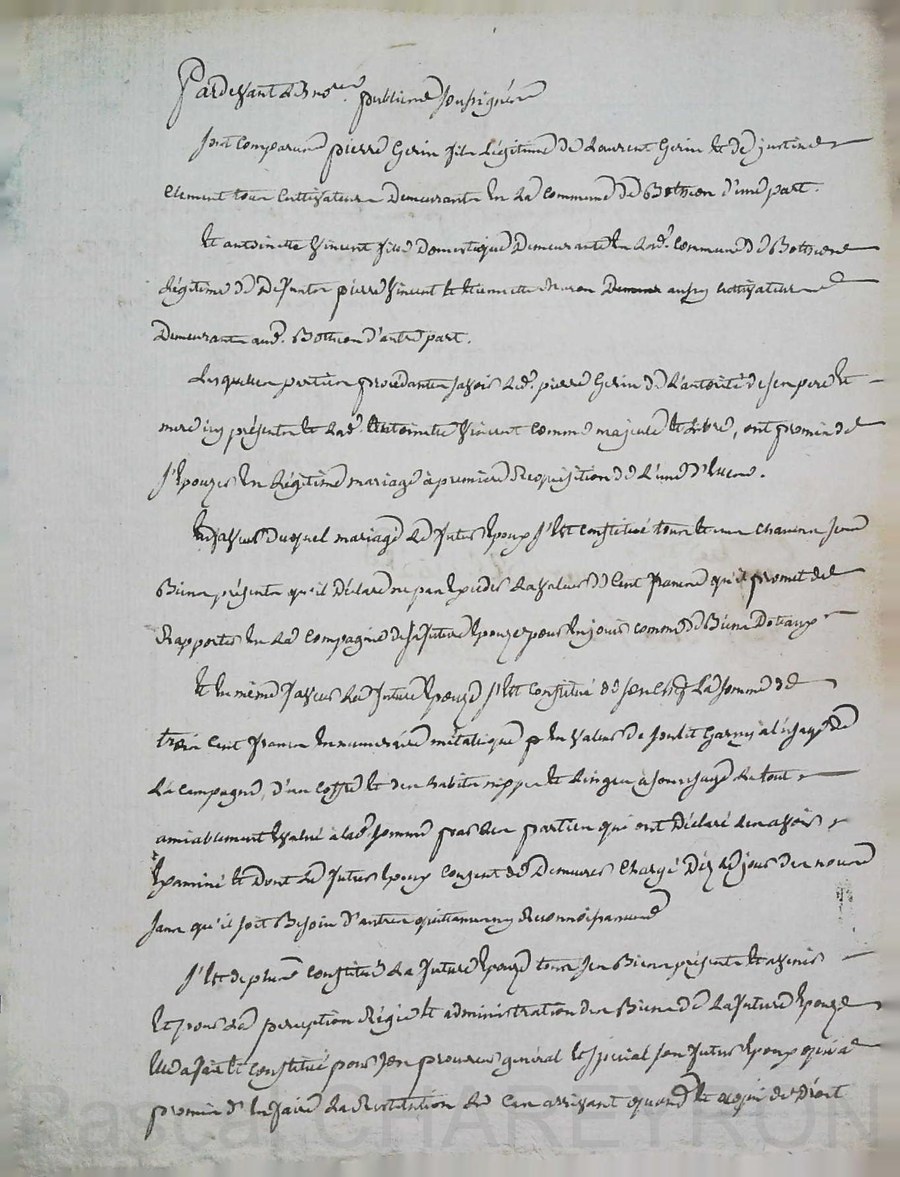 Pardevant les no.res publics soussignés
sont comparus pierre Gerin fils légitime de Laurent Gerin et de justine
Clement tous Cultivateurs Demeurants en La Commune de Bothéon d'une part.
Et antoinette Vincent fille Domestique Demeurante en lad.e Commune de Bothéon
Légitime de Defunts pierre Vincent et Demeur aussy cultivateurs
Demeurants aud. Bothéon d'autre part.
Lesquelles parties procédantes savoir led. pierre Gerin de L'autorité de ses pere et
mere icy présents et lad. Antoinette Vincent comme majeure et Libre, ont promis de
s'Epouzer en Légitime mariage à premiere Requisition de L'une d'Elles.
En faveur duquel mariage Le futur Epoux s'Est constitué tous et un chacuns ses
Biens présents qu'il Déclare ne pas Exceder La valeur de Cent francs qu'il promet de
Rapporter en La Compagnie de sa future Epouze pour en jouir comme de Biens Dotaux
Et en même faveur La future Epouze s'Est constitué de son chef La somme de
trois Cent francs en numéraire métalique p en valeur de son lit Garny à l'usage de
La Campagne, d'un coffre et des habits nippes et Linges à son usage Le tout
amiablement Evalué à lad. somme par les parties qui ont Déclaré les avoir
Examiné et Dont Le futur Epoux consent de Demeurer Chargé Dèz Le jour des noces
sans qu'il soit Besoin d'autres quittances ny Reconnoissances
s'Est de plus Constitué La future Epouze tous ses Biens présents et avenir
Et pour La perception Régie et administration des Biens de La future Epouze
Elle a fait et constitué pour son procureur général et spécial son futur Epoux qui a
promis d'En faire La Restitution Le Cas arrivant quand et à qui de Droit
Pascal CHAREYRON